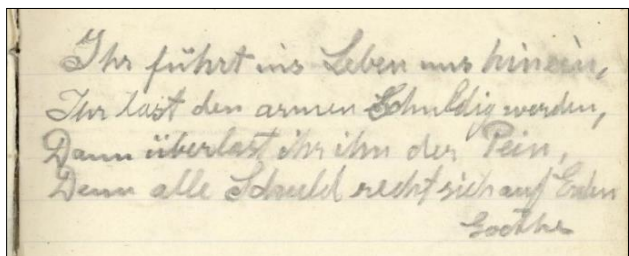 Ihr führt ins Leben uns hinein,
Ihr last den armen Schuldig werden,
Dann überlast ihr ihn der Pein,
Denn alle Schuld recht sich auf Erden
Goethe